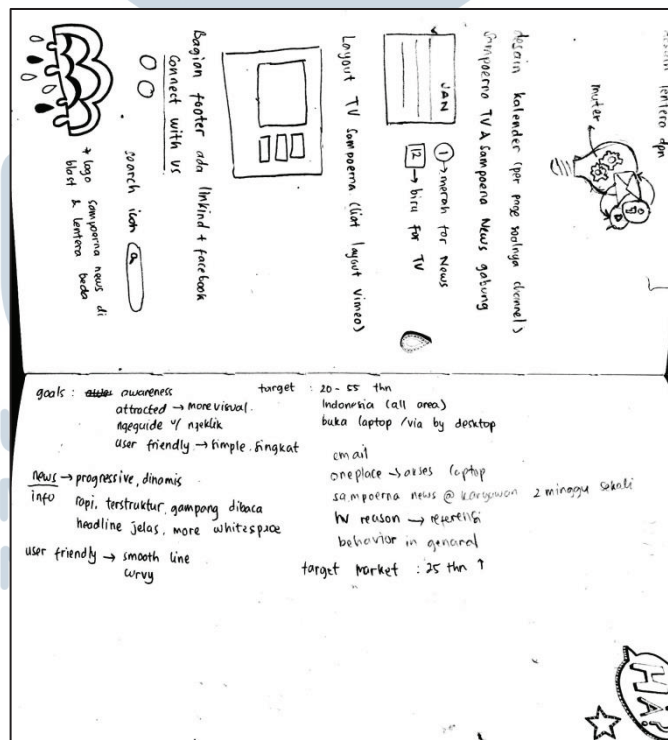 muter
desain kalender (per page soalnya channel)
Sampoerna TV & Sampoerna News gabung
JAN
1 → merah for News
12 → biru for TV
Layout TV Sampoerna (liat layout Vimeo)
Bagian footer ada linkind + facebook
Connect with us
search icon
+ logo Sampoerna news di
blast & lentera beda
goals : awareness
attracted → more visual.
ngeguide u/ ngeklik
user friendly → simple. singkat
news → progressive, dinamis
info rapi, terstruktur, gampang dibaca
headline jelas, more whitespace
user friendly → smooth line
curvy
target : 20 - 55 thn
Indonesia (all area)
buka laptop / via by desktop
email
one place → akses laptop
sampoerna news @ karyawan 2 minggu sekali
reason → referensi
behavior in general
target market : 25 thn ↑
HA!